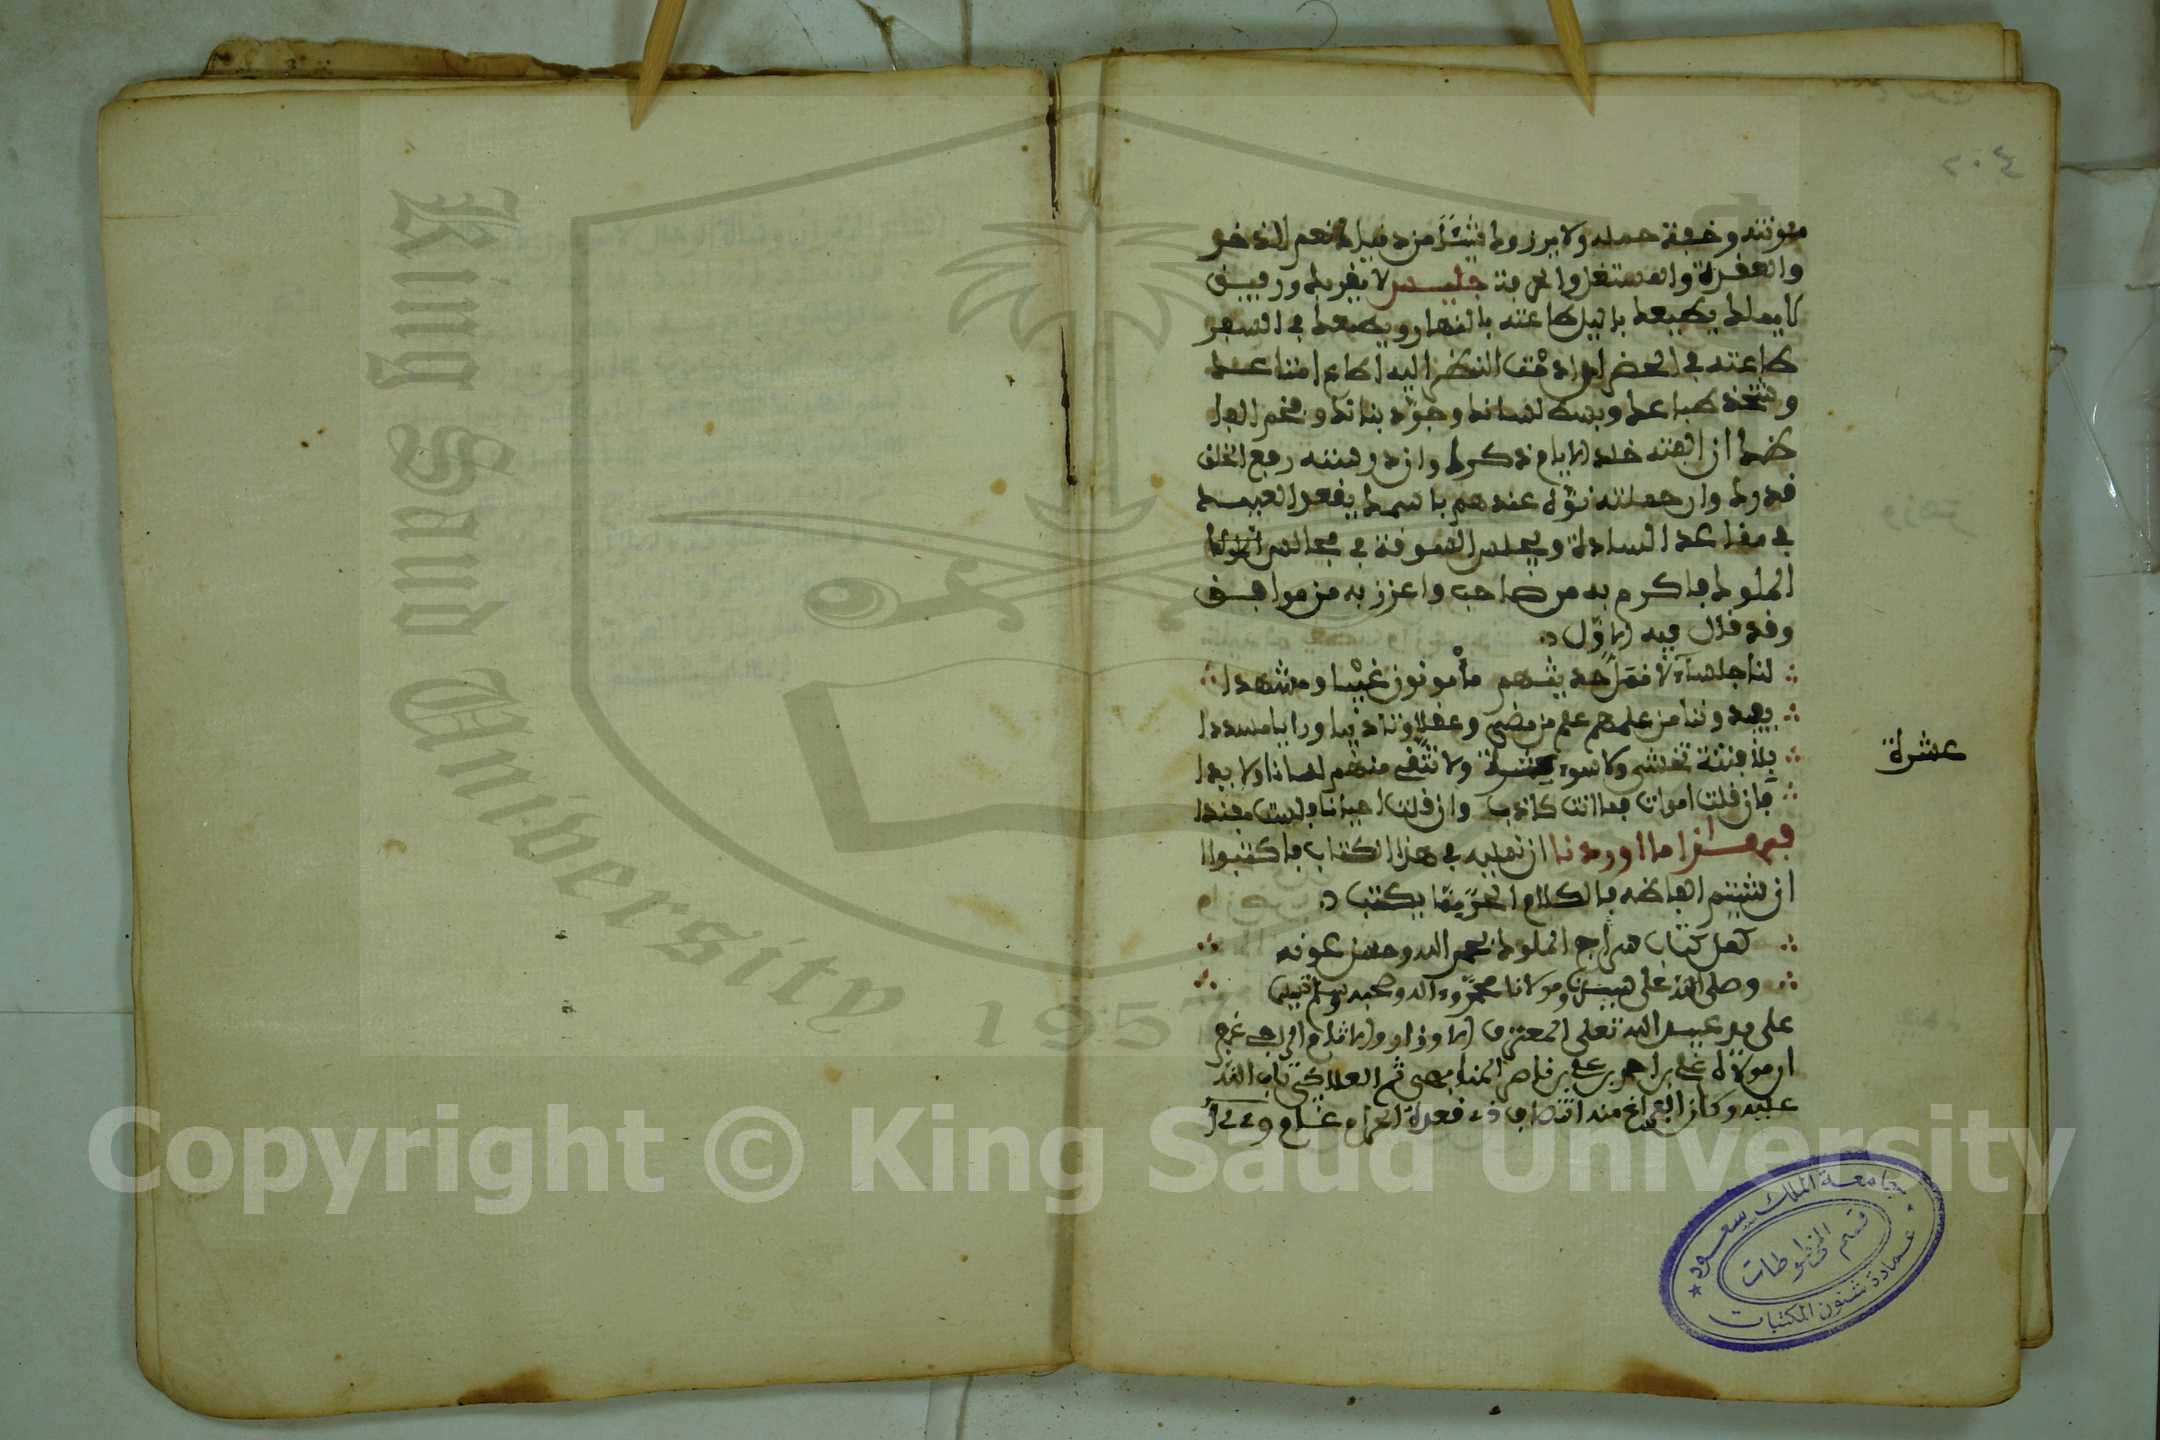 ٢٠٤
مئونته وخفة حمله ولا يرزوك شيئا من دنياك نعم الذخر
والعقدة والمستغل والحرفة جليس لا يغريك ورفيق
لا يملك يطيعك بالليل طاعته بالنهار ويطيعك في السفر
طاعته في الحضر ان ادمت النظر اليه اطاع امتاعك
وشحذ طباعك وبسط لسانك وجود بنانك وفخم الفا
ظك ان الفته خلد الايام ذكرك وان درسته رفع الخلق
قدرك وان حملته نوه عندهم باسمك يقعد العبيد
في مقاعد السادة ويجلس السوقة في مجالس
الملوك فاكرم به من صاحب واعزز به من موافق
وقد قال فيه الاول
لنا جلساء لا نمل حديثهم مأمونون غيبا ومشهدا
يفيدوننا من علمهم علم من مضى وعقلا وتاديبا ورايا مسددا
بلا فتنة تخشى ولا سوء عشرة ولا نتقي منهم لسانا ولا يدا
عشرة
فان قلت اموات فما انت كاذب وان قلت احياء فلست مفندا
ما اوردنا ان نمليه في هذا الكتاب
الفاظه بالكلام
كمل كتاب سراج الملوك بحمد الله وحسن عونه
وصلى الله على سيدنا ومولانا محمد وءاله وصحبه وسلم
على يد عبيد الله تعلى المعترف
علي بن
عليه وكان الفراغ منه انتصاف ذي قعدة الحرام عام
جامعة الملك سعود
قسم المخطوطات
عمادة شئون المكتبات
King Saud University
1957
Copyright © King Saud University